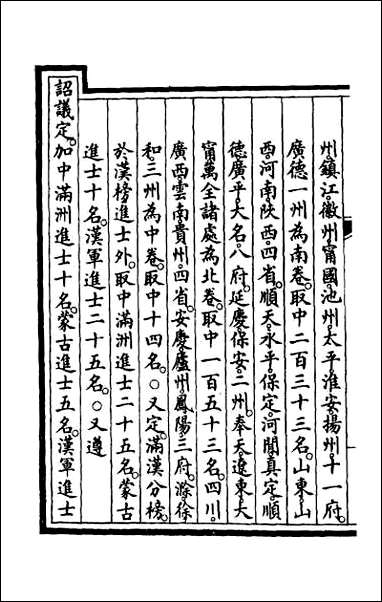 州。鎮江。徽州。甯國。池州。太平。淮安。揚州。十一府。
廣德一州為南卷。取中二百三十三名。山東。山
西。河南。陝西。四省。順天。永平。保定。河閒。真定。順
德。廣平。大名。八府。延慶。保安。二州。奉天。遼東。大
甯。萬全諸處為北卷。取中一百五十三名。四川。
廣西。雲南。貴州。四省。安慶。廬州。鳳陽。三府。滁。徐。
和。三州為中卷。取中十四名。○又定。滿漢分榜。
於漢榜進士外。取中滿洲進士二十五名。蒙古
進士十名。漢軍進士二十五名。○又遵
詔議定。加中滿洲進士十名。蒙古進士五名。漢軍進士